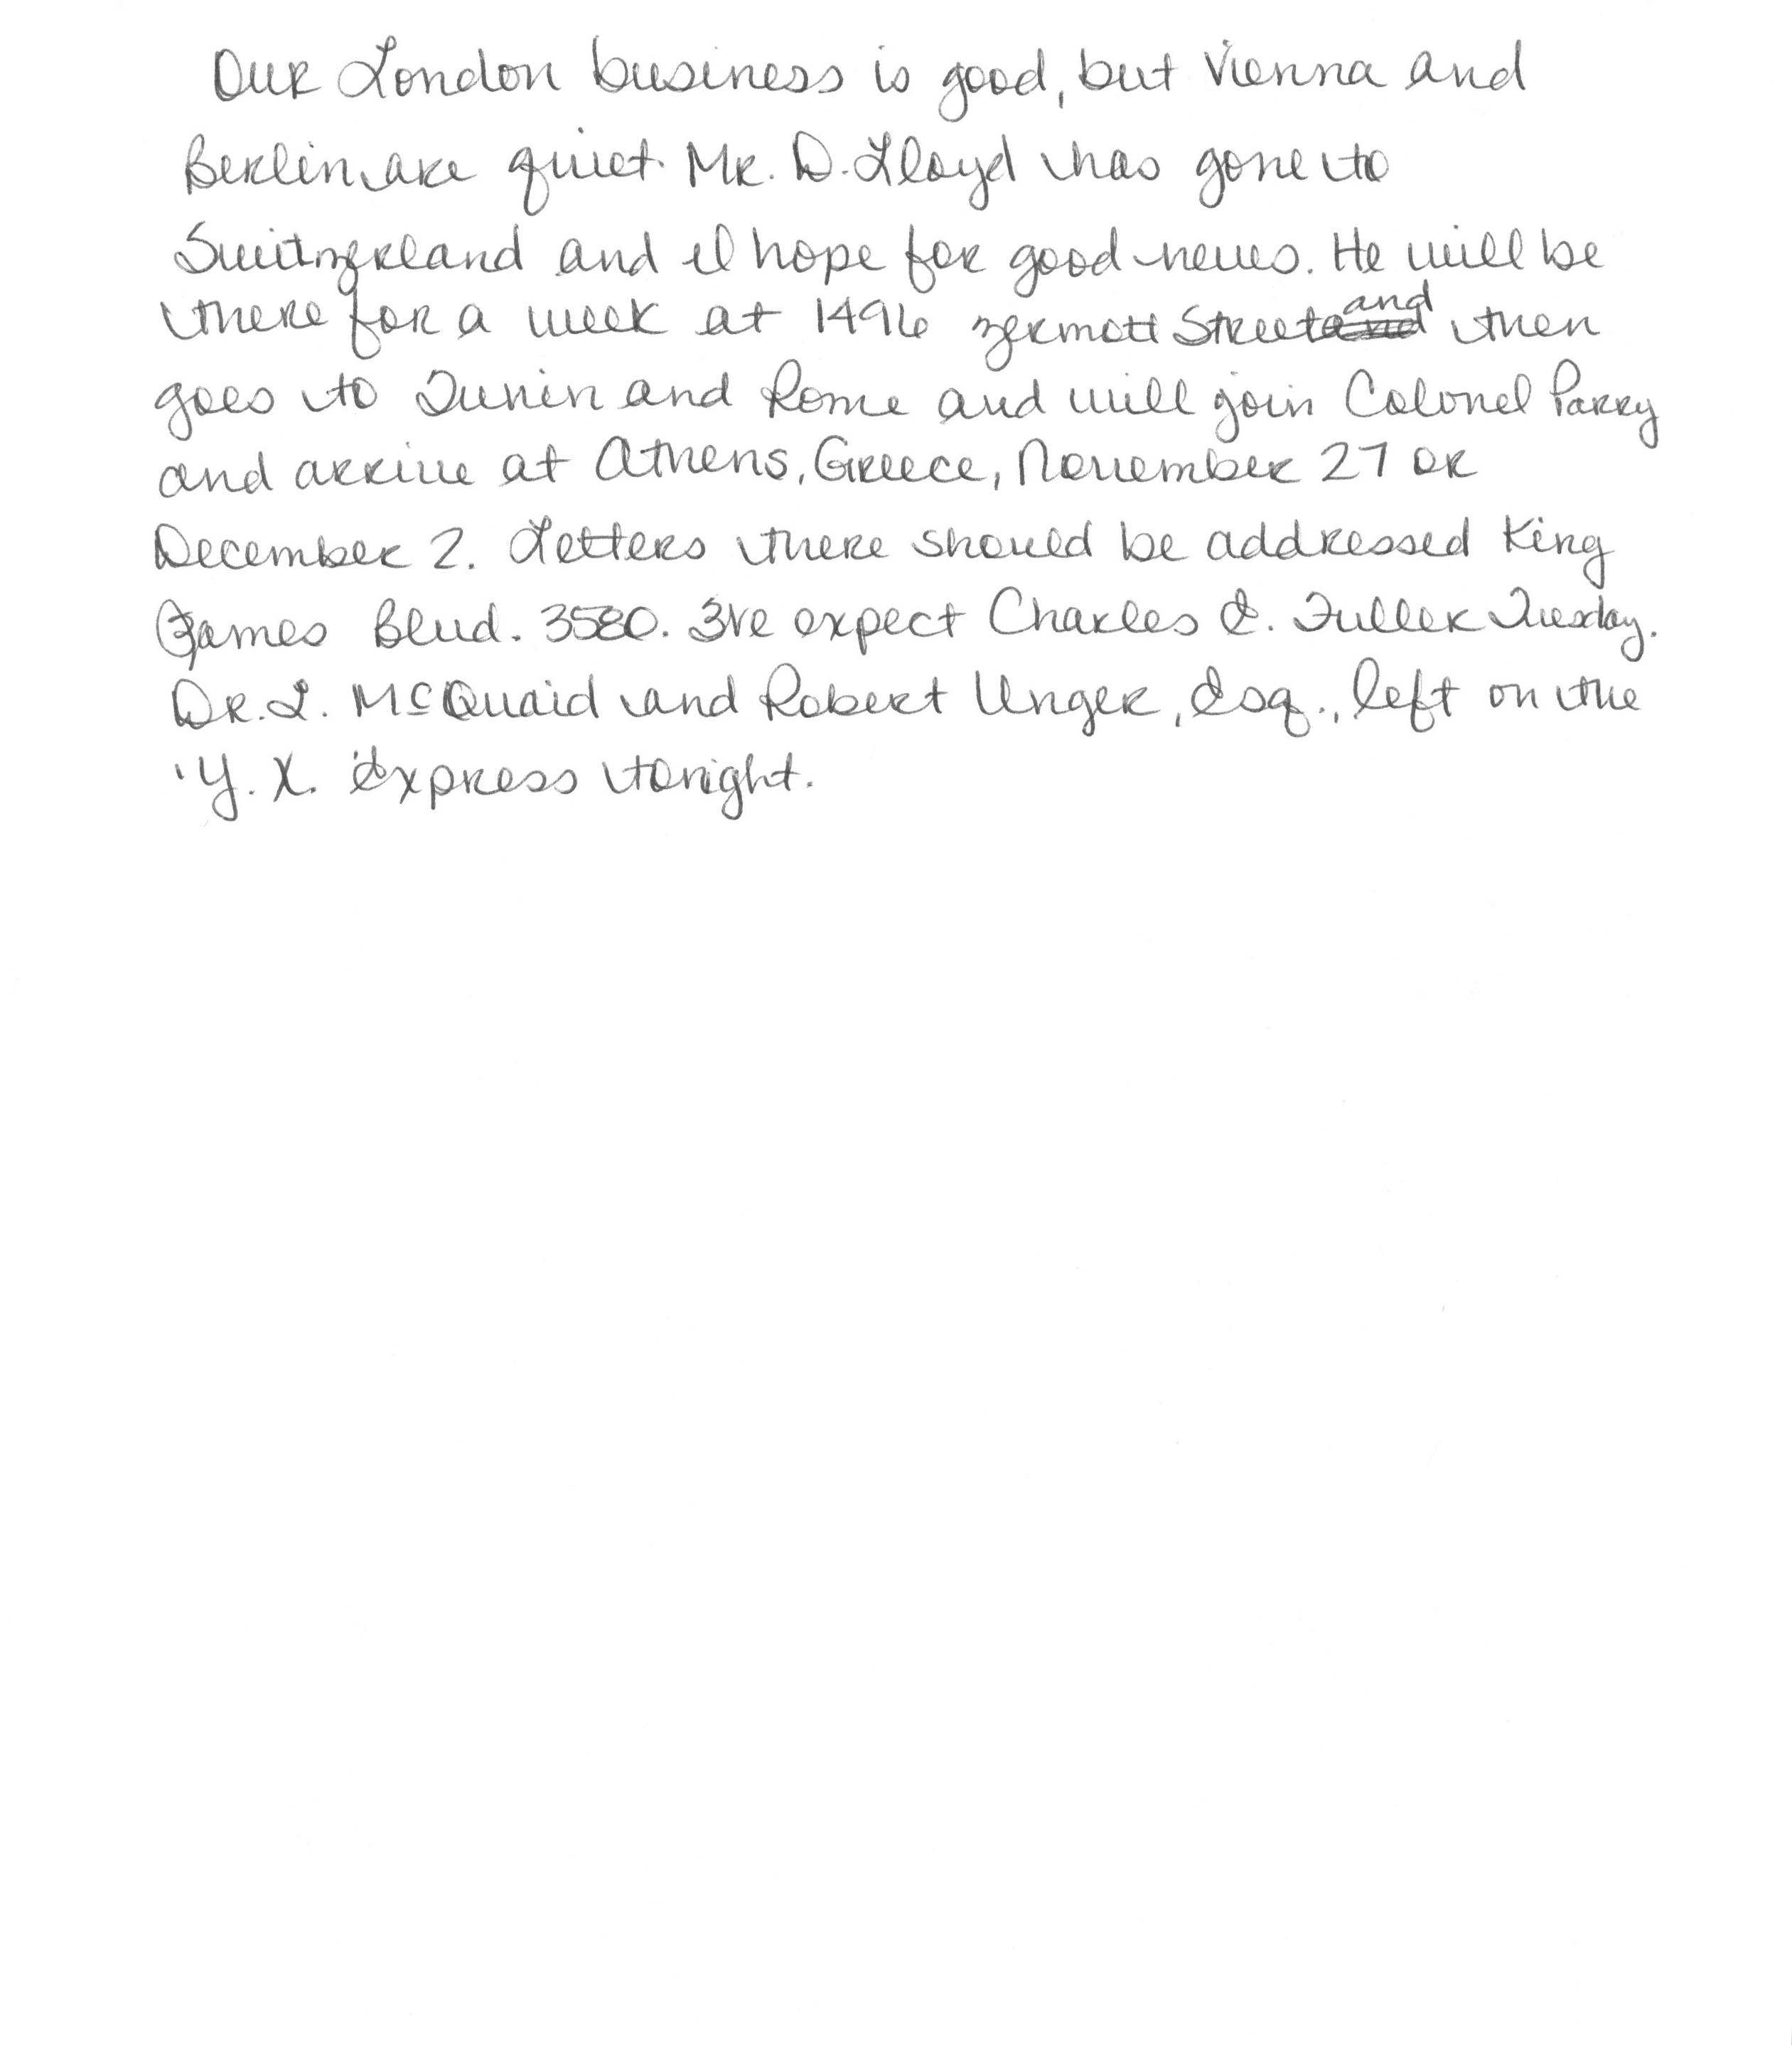 Our London business is good, but Vienna and
Berlin are quiet. Mr. D. Lloyd has gone to
Switzerland and I hope for good news. He will be
there for a week at 1496 Zermott Street and then
goes to Turin and Rome and will join Colonel Parry
and arrive at Athens, Greece, November 27 or
December 2. Letters there should be addressed King
James Blvd. 3580. We expect Charles E. Fuller Tuesday.
Dr. L. McQuaid and Robert Unger, Esq., left on the
Y. X. Express tonight.